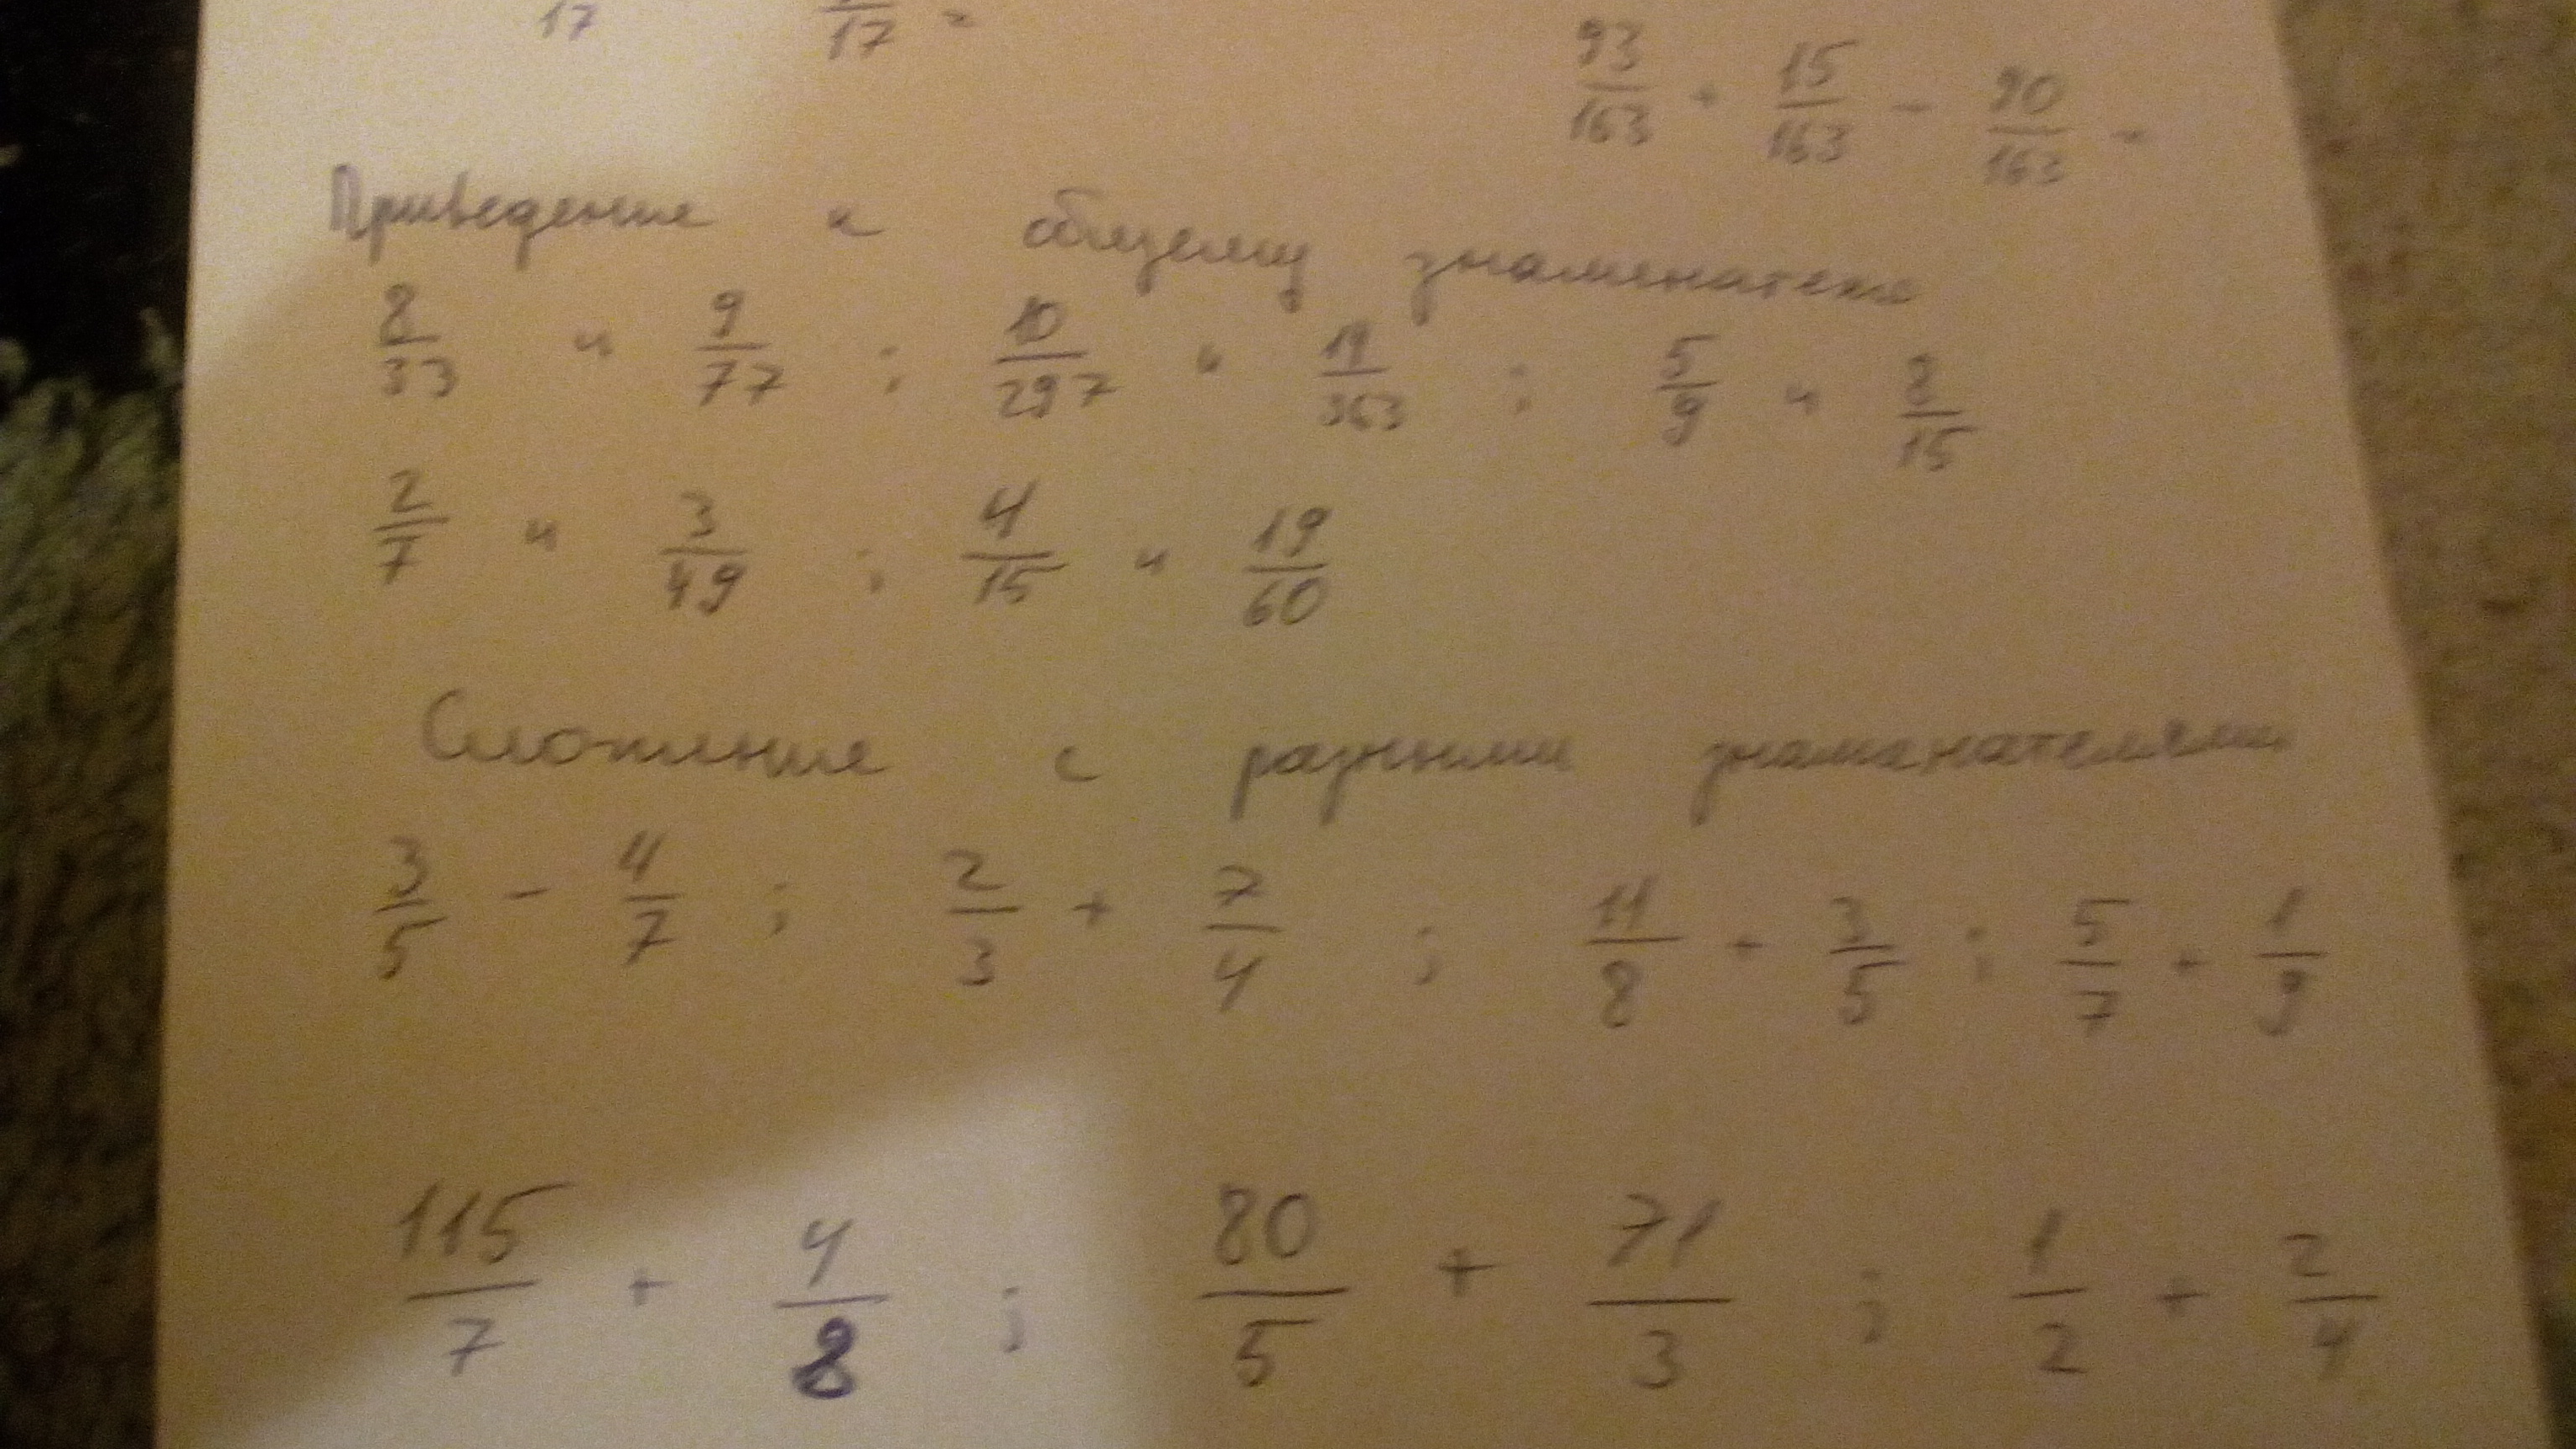 17 17 =
93/163 + 15/163 - 90/163 =
Приведение к общему знаменателю
8/33 и 9/77 ; 10/297 и 19/363 ; 5/9 и 8/15
2/7 и 3/49 ; 4/15 и 19/60
Сложение с разными знаменателями
3/5 - 4/7 ; 2/3 + 7/4 ; 11/8 + 3/5 ; 5/7 + 1/9
115/7 + 4/8 ; 80/5 + 71/3 ; 1/2 + 2/4